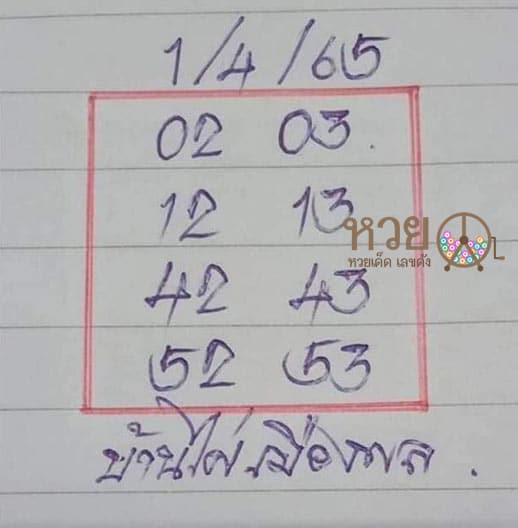 1/4/65
02 03.
12 13
หวย
หวยเด็ด เลขดัง
42 43
52 53
บ้านไผ่เมืองพล.